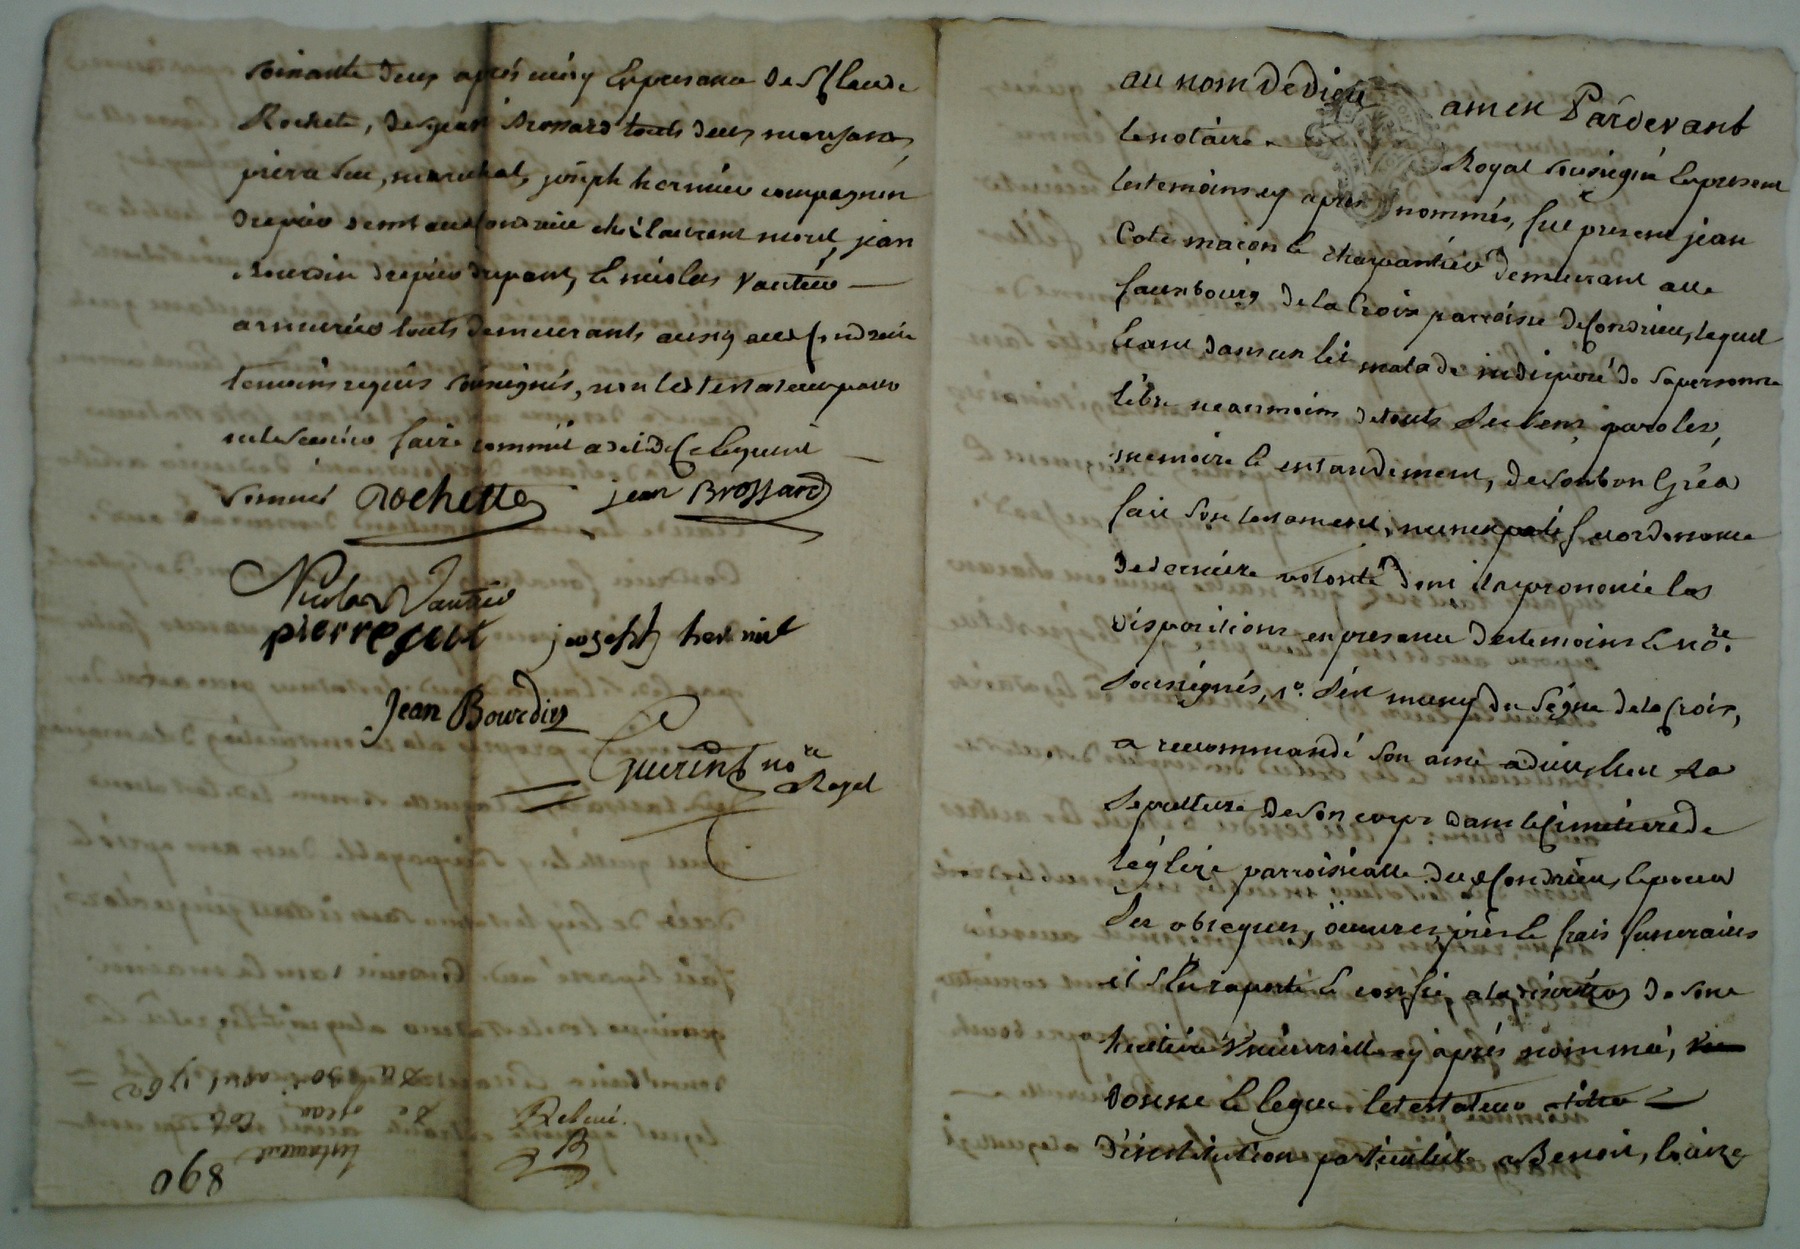 soixante deux après midy En presence de Sr Claude
Rochette, de jean Brossard touts deux marchands,
pierre Sut, marechal, joseph hermieu compagnon
drapier demt aud Condrieu chés laurent morel, jean
Bourdin drapier drapant, & nicolas Vautier
armurier touts demeurants aussy aud Condrieu
temoins requis soussignés, non led testateur pour
ne le scavoir faire comme il a dit de Ce Enquis &
sommé Rochette jean Brossard
Nicolas Vautier
pierre sut joseph hermit
Jean Bourdin
Guerin nore
Royal
Relevé.
testament
de jean cote
du 30e aout 1762
890
au nom de Dieu amen Pardevant
le notaire Royal soussigné En presence
les temoins cy après nommés, fut present jean
Cote maçon & charpentier demeurant au
fauxbourg de la Croix parroisse de Condrieu, lequel
Etant dans un lit malade indisposé de sa personne
libre neanmoins de touts ses sens, paroles,
memoire & entandement, de son bon Gré a
fait son testament, nuncupatif & ordonnance
de derniere volonté dont il a prononcé les
dispositions en presence des temoins & nore
soussignés, 1o. s'est muny du Signe de la Croix,
a recommandé son ame a dieu, Elleu sa
sepulture de son corps dans le Cimetiere de
l'église parroissialle dud Condrieu, & pour
ses obseques, oeuvres pies & frais funeraires
il s'En raporte & confie a la discrétion de son
heritiere Universelle cy après nommée,
donne & legue le testateur a titre
d'institution particuliere a Benoit, Claire